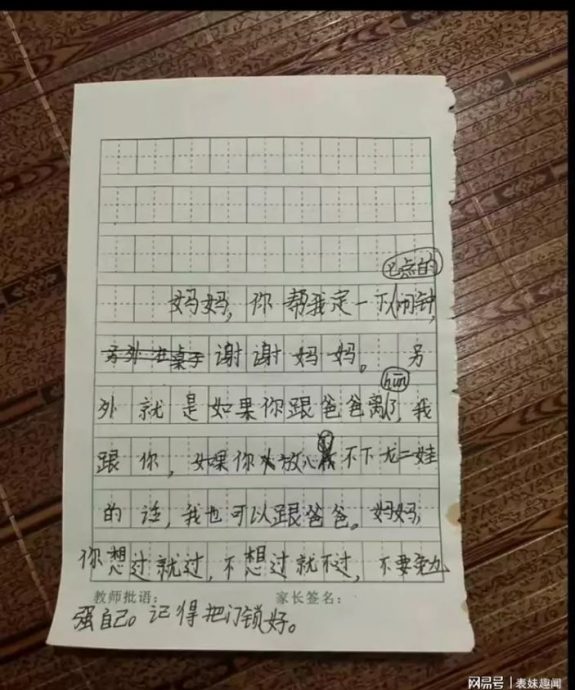 8点的
妈妈,你帮我定一下闹钟,
另外在桌子谢谢妈妈。另
hūn
外就是如果你跟爸爸离了,我
跟你,如果你放心不下龙二娃
的话,我也可以跟爸爸。妈妈,
你想过就过,不想过就不过,不要勉
教师批语: 家长签名:
强自己。记得把门锁好。
网易号 | 表妹趣闻